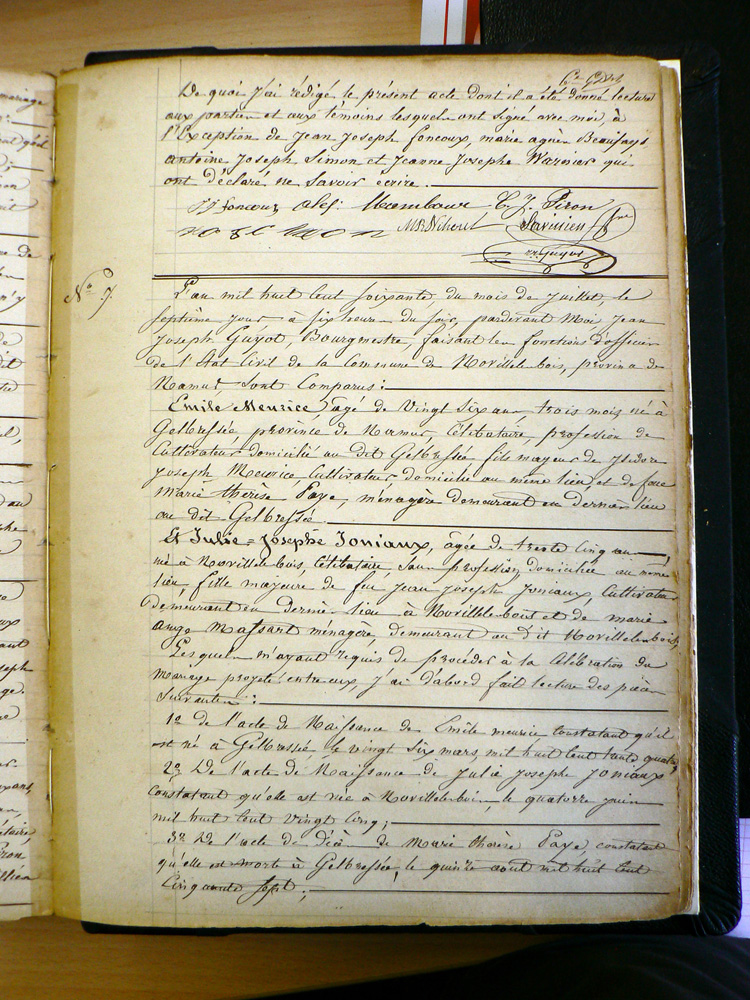 De quoi j'ai rédigé le présent acte dont il a été donné lecture
aux parties et aux témoins lesquels ont signé avec moi, à
l'Exception de Jean Joseph foncoux, marie agnès Beaufays
antoine Joseph Simon et Jeanne Josephe Warnier qui
ont déclaré ne Savoir écrire.
JJ foncoux alex: Mambour C. J. Piron
Guyot
N° 7.
L'an mil huit Cent soixante du mois de Juillet, le
septième jour à six heures du soir, pardevant Moi Jean
Joseph Guyot, Bourgmestre, faisant les fonctions d'officier
de l'Etat Civil de la Commune de Noville les bois, province de
Namur Sont Comparus:
Emile Meurice, agé de Vingt Six ans, trois mois né à
Gelbressée, province de Namur, Célibataire, profession de
Cultivateur domicilié au dit Gelbressée fils majeur de Isidore
Joseph Meurice Cultivateur domicilié au même lieu et de feue
Marie thérèse Paye, ménagère demeurant en dernier lieu
au dit Gelbressée.
Et Julie=Josephe Joniaux, agée de trente Cinq ans
né à Noville les bois, Célibataire, sans profession, domiciliée au même
lieu, fille majeure de feu Jean Joseph Joniaux, Cultivateur
demeurant en dernier lieu à Noville les bois et de marie
ange Massart ménagère demeurant au dit Noville les bois,
Lesquels m'ayant requis de procéder à la Célébration du
Mariage projeté entre eux j'ai d'abord fait lecture des pièces
Suivantes:
1° de l'acte de Naissance de Emile meurice Constatant qu'il
est né à Gelbressée le vingt Six mars, mil huit Cent trente quatre,
2° De l'acte de Naissance de Julie Josephe Joniaux
Constatant qu'elle est née à Noville les bois, le quatorze juin
mil huit Cent vingt Cinq;
3° De l'acte de Décès de Marie thérèse Paye constatant
qu'elle est morte à Gelbressée, le quinze aout mil huit Cent
Cinquante Sept;